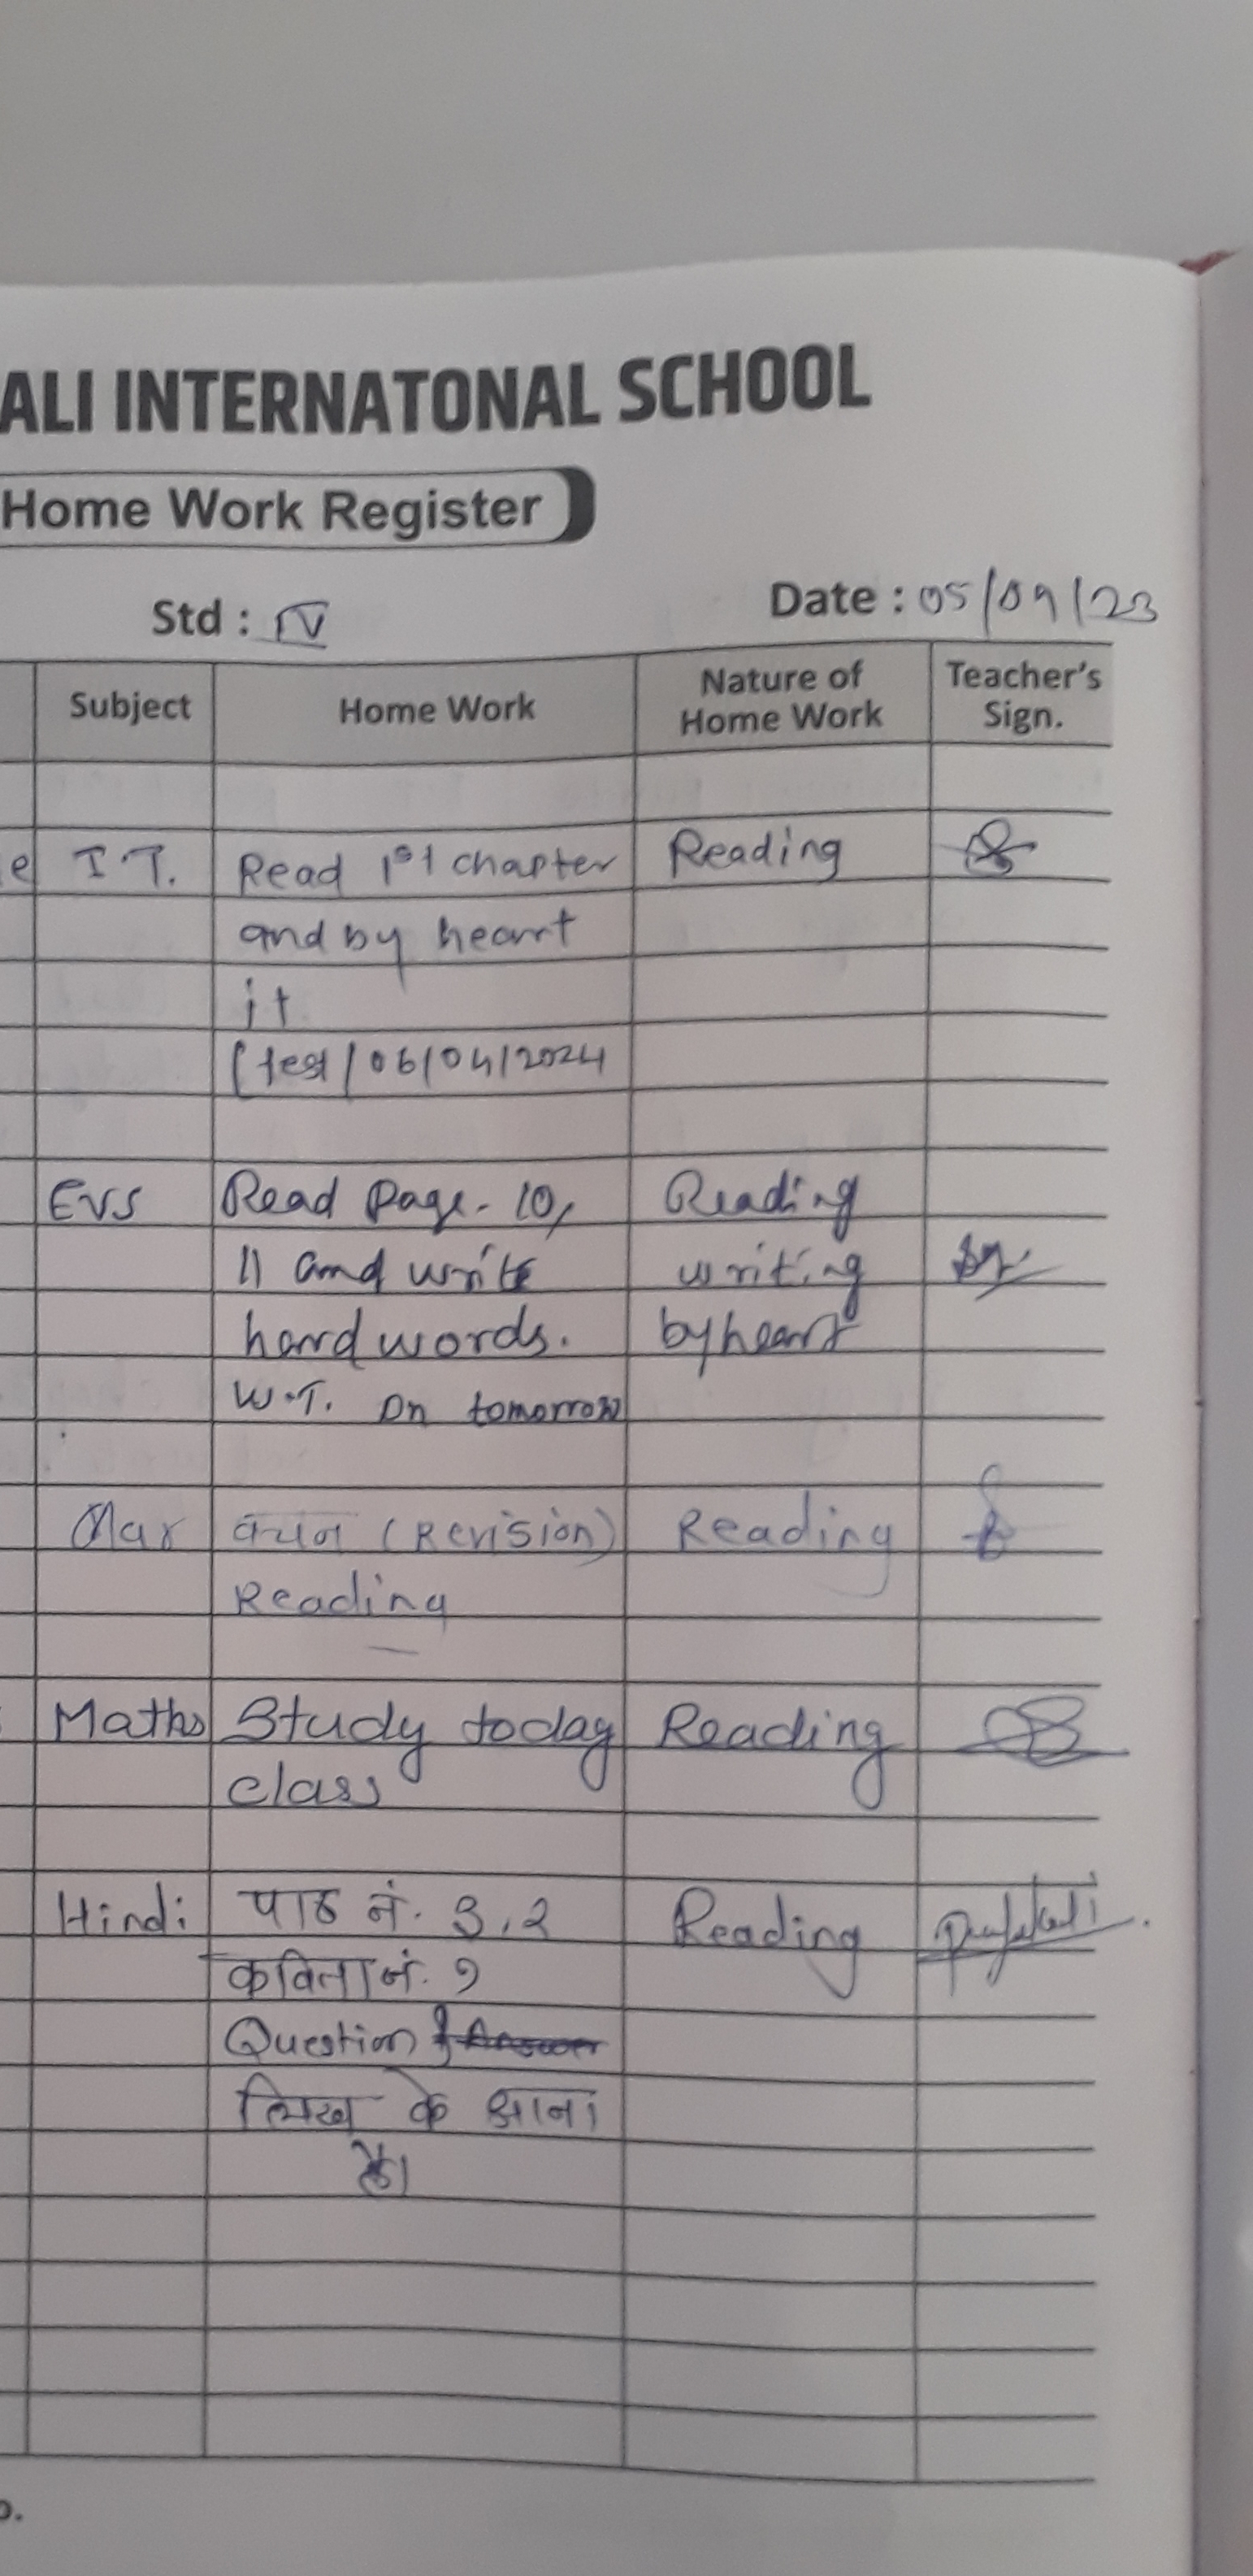 ALI INTERNATONAL SCHOOL
Home Work Register
Std : IV Date : 05/09/23
Subject Home Work Nature of Home Work Teacher's Sign.
e I.T. Read 1st chapter Reading
and by heart
it
(test/06/04/2024
EVS Read Page- 10, Reading
11 and write writing
hard words. byheart
W.T. on tomorrow
Mar वचन (Revision) Reading
Reading
Maths Study today Reading
class
Hindi पाठ नं. 3.2 Reading
कविता नं. १
Question
लिख के आना
है।